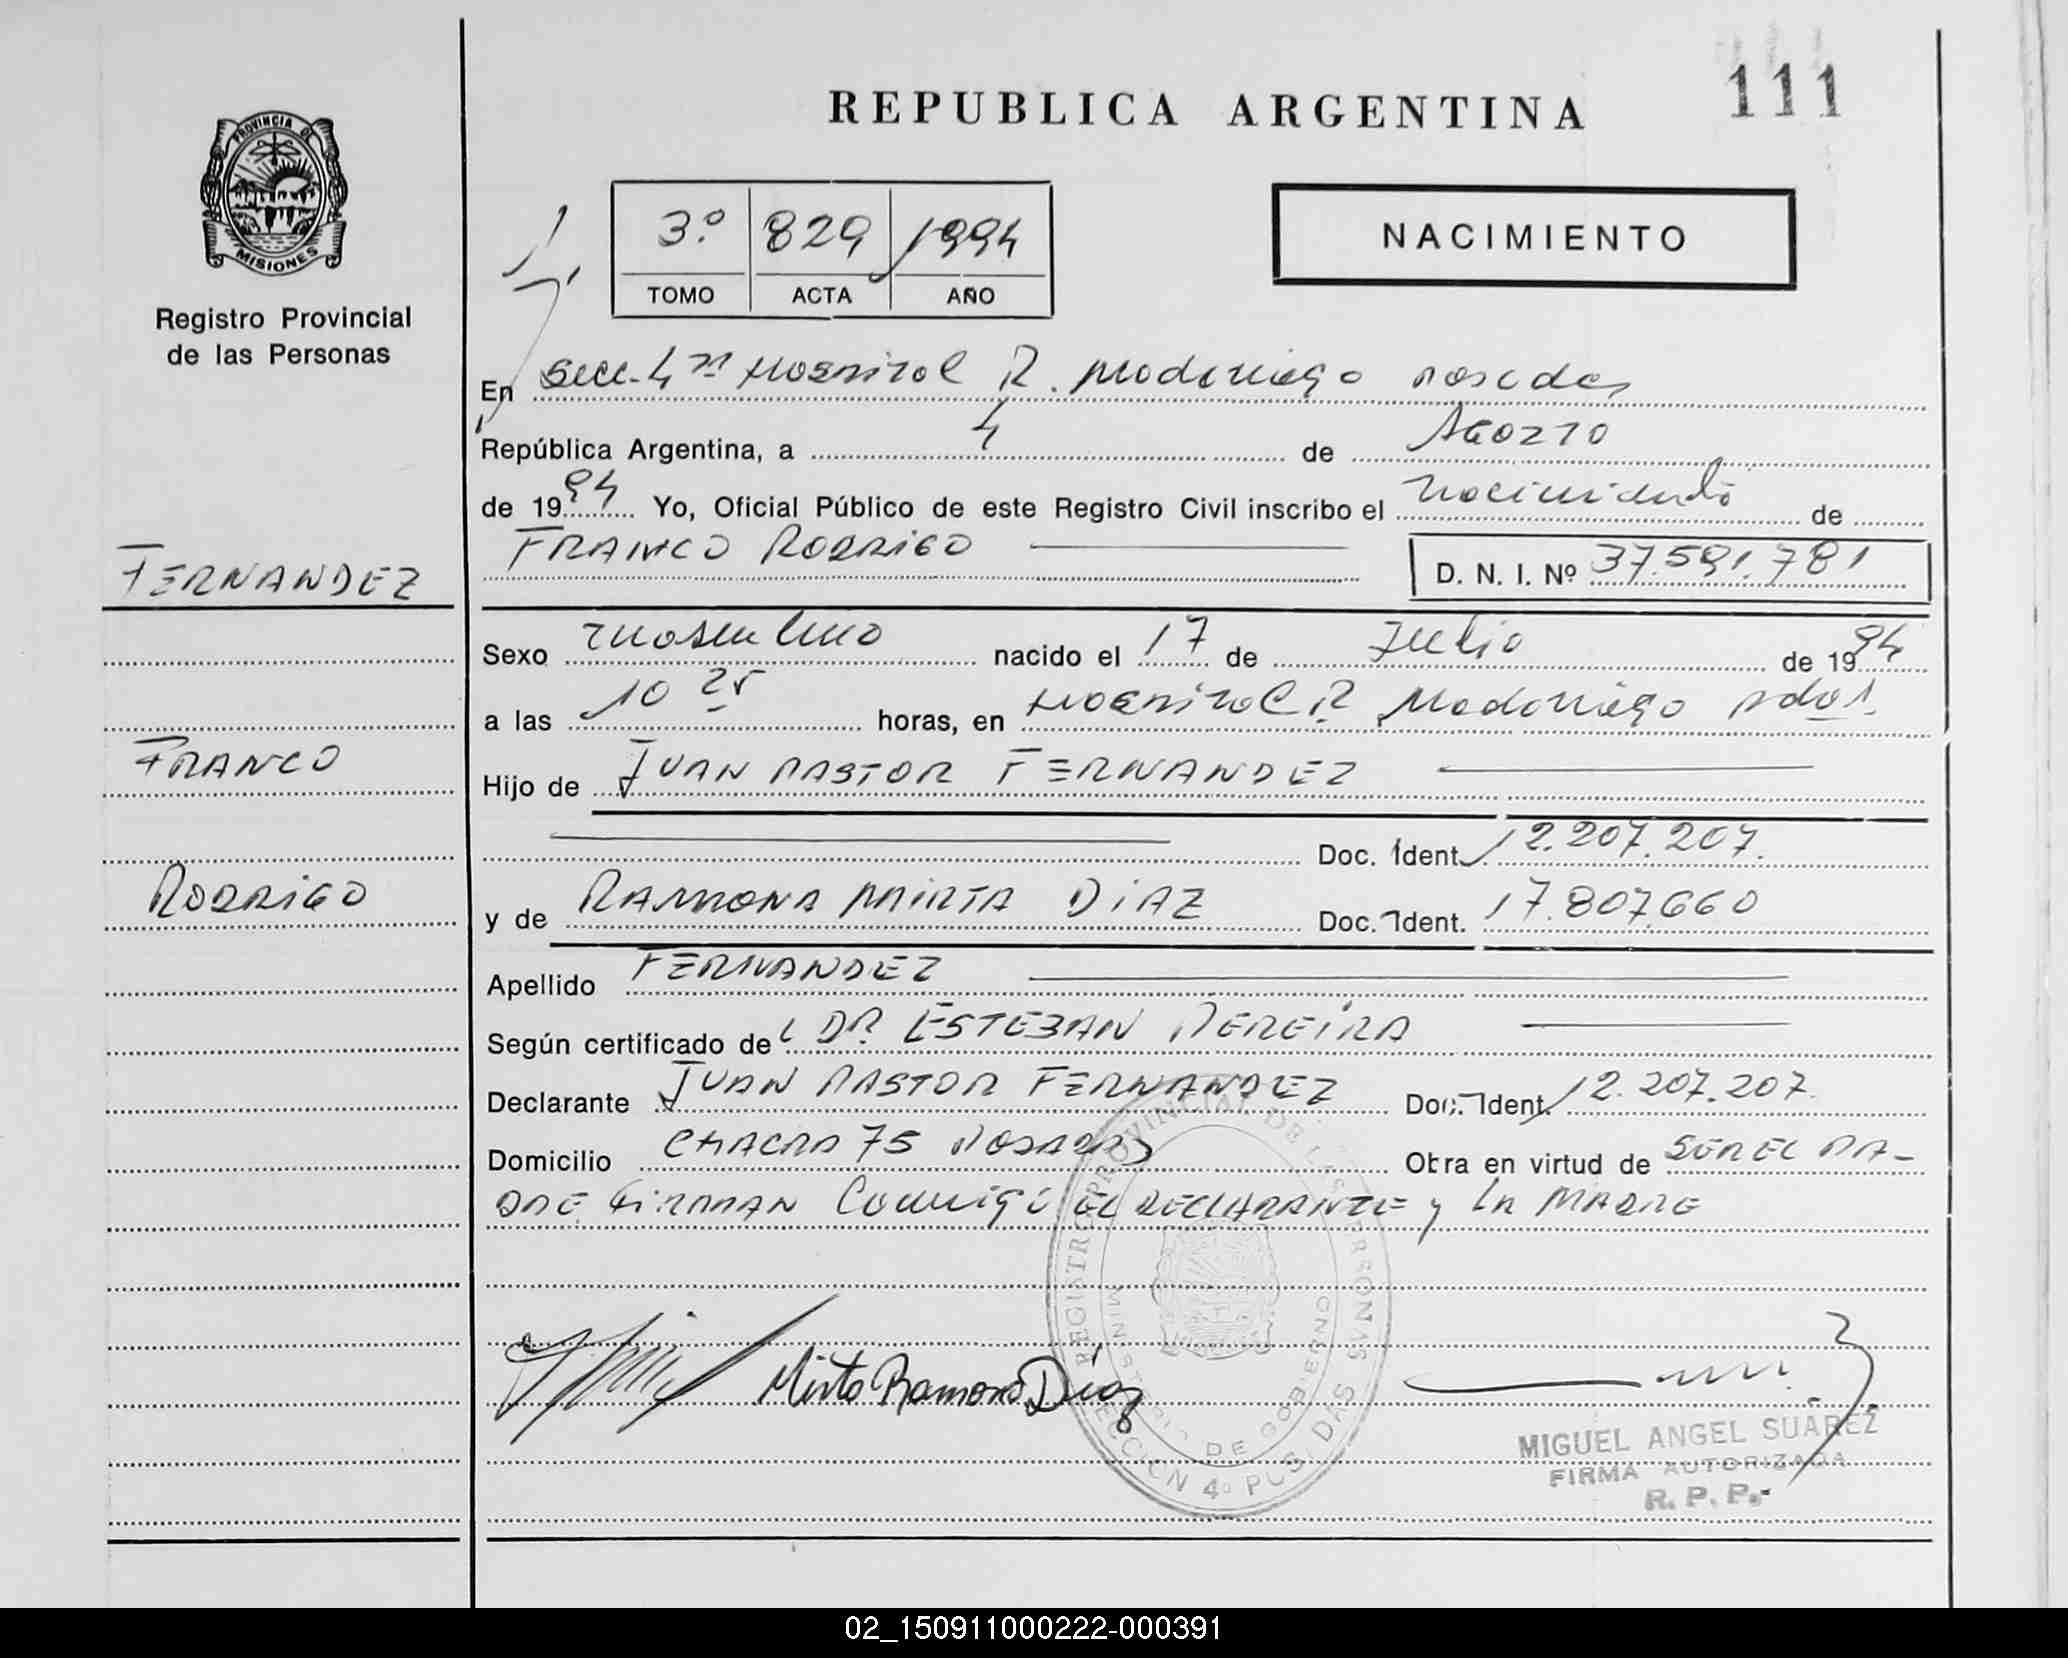 REPUBLICA ARGENTINA
111
PROVINCIA DE
MISIONES
Registro Provincial
de las Personas
3.º 829 1994
TOMO ACTA AÑO
NACIMIENTO
En Secc. 4ta Hospital R. Madariaga Posadas
República Argentina, a 4 de Agosto
de 1994 Yo, Oficial Público de este Registro Civil inscribo el nacimiento de
FRANCO RODRIGO D. N. I. Nº 37.591.781
FERNANDEZ
Sexo masculino nacido el 17 de Julio de 1994
a las 10 25 horas, en Hospital R. Madariaga Pdas.
FRANCO
Hijo de JUAN PASTOR FERNANDEZ
Doc. Ident. 12.207.207.
RODRIGO
y de RAMONA MIRTA DIAZ Doc. Ident. 17.807.660
Apellido FERNANDEZ
Según certificado de DR. ESTEBAN PEREIRA
Declarante JUAN PASTOR FERNANDEZ Doc. Ident. 12.207.207.
Domicilio CHACRA 75 POSADAS Obra en virtud de SER EL PA-
DRE FIRMAN Conmigo EL DECLARANTE y LA MADRE
REGISTRO PROVINCIAL DE LAS PERSONAS
MINISTERIO DE GOBIERNO
SECCION 4º POSADAS
Mirta Ramona Díaz
MIGUEL ANGEL SUAREZ
FIRMA AUTORIZADA
R. P. P.
02_150911000222-000391